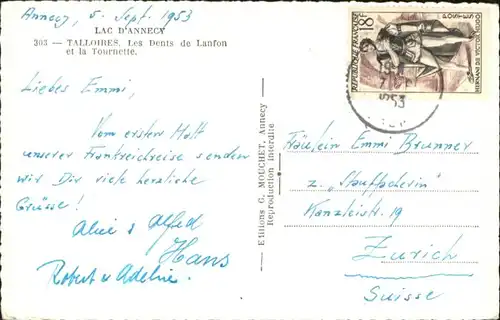 Annecy, 5. Sept. 1953
LAC D'ANNECY
303 — TALLOIRES. Les Dents de Lanfon
et la Tournette.
Liebes Emmi,
Vom ersten Halt
unserer Frankreichreise senden
wir Dir viele herzliche
Grüsse!
Alice & Alfred
Hans
Robert u. Adeline.
Editions G. MOUCHET, Annecy
Reproduction interdite
18F
REPUBLIQUE FRANÇAISE
POSTES
953
Fräulein Emmi Brunner
z. „Stauffacherin"
Kanzleistr. 19
Zürich
Suisse